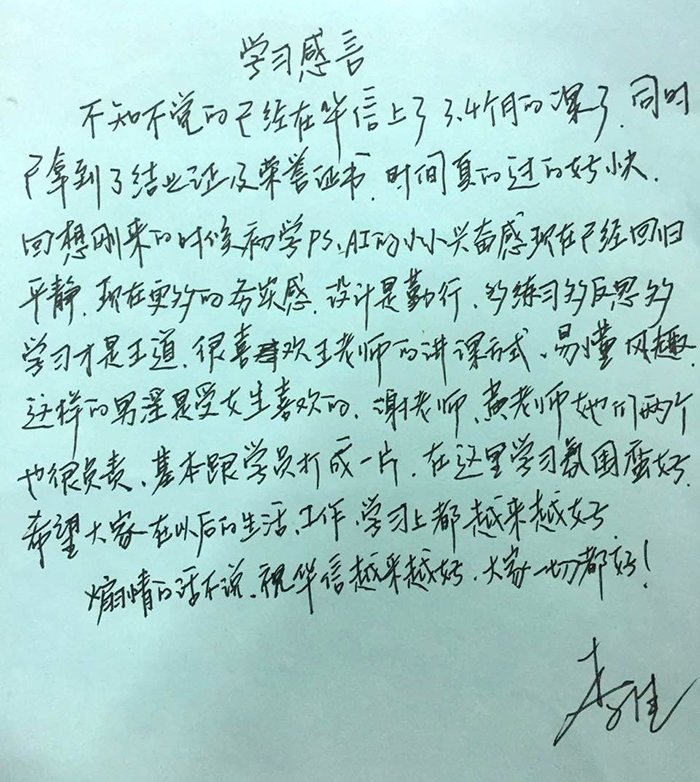 学习感言
不知不觉的已经在华信上了3.4个月的课了.同时
已拿到了结业证及荣誉证书.时间真的过的好快.
回想刚来的时候初学PS、AI的小小兴奋感现在已经回归
平静.现在更多的务实感.设计是勤行.多练习多反思多
学习才是王道.很喜欢王老师的讲课方式、易懂风趣.
这样的男淫是受女生喜欢的.谢老师、黄老师她们两个
也很负责、基本跟学员打成一片.在这里学习氛围蛮好.
希望大家在以后的生活、工作、学习上都越来越好.
煽情的话不说、祝华信越来越好.大家一切都好!
李佳